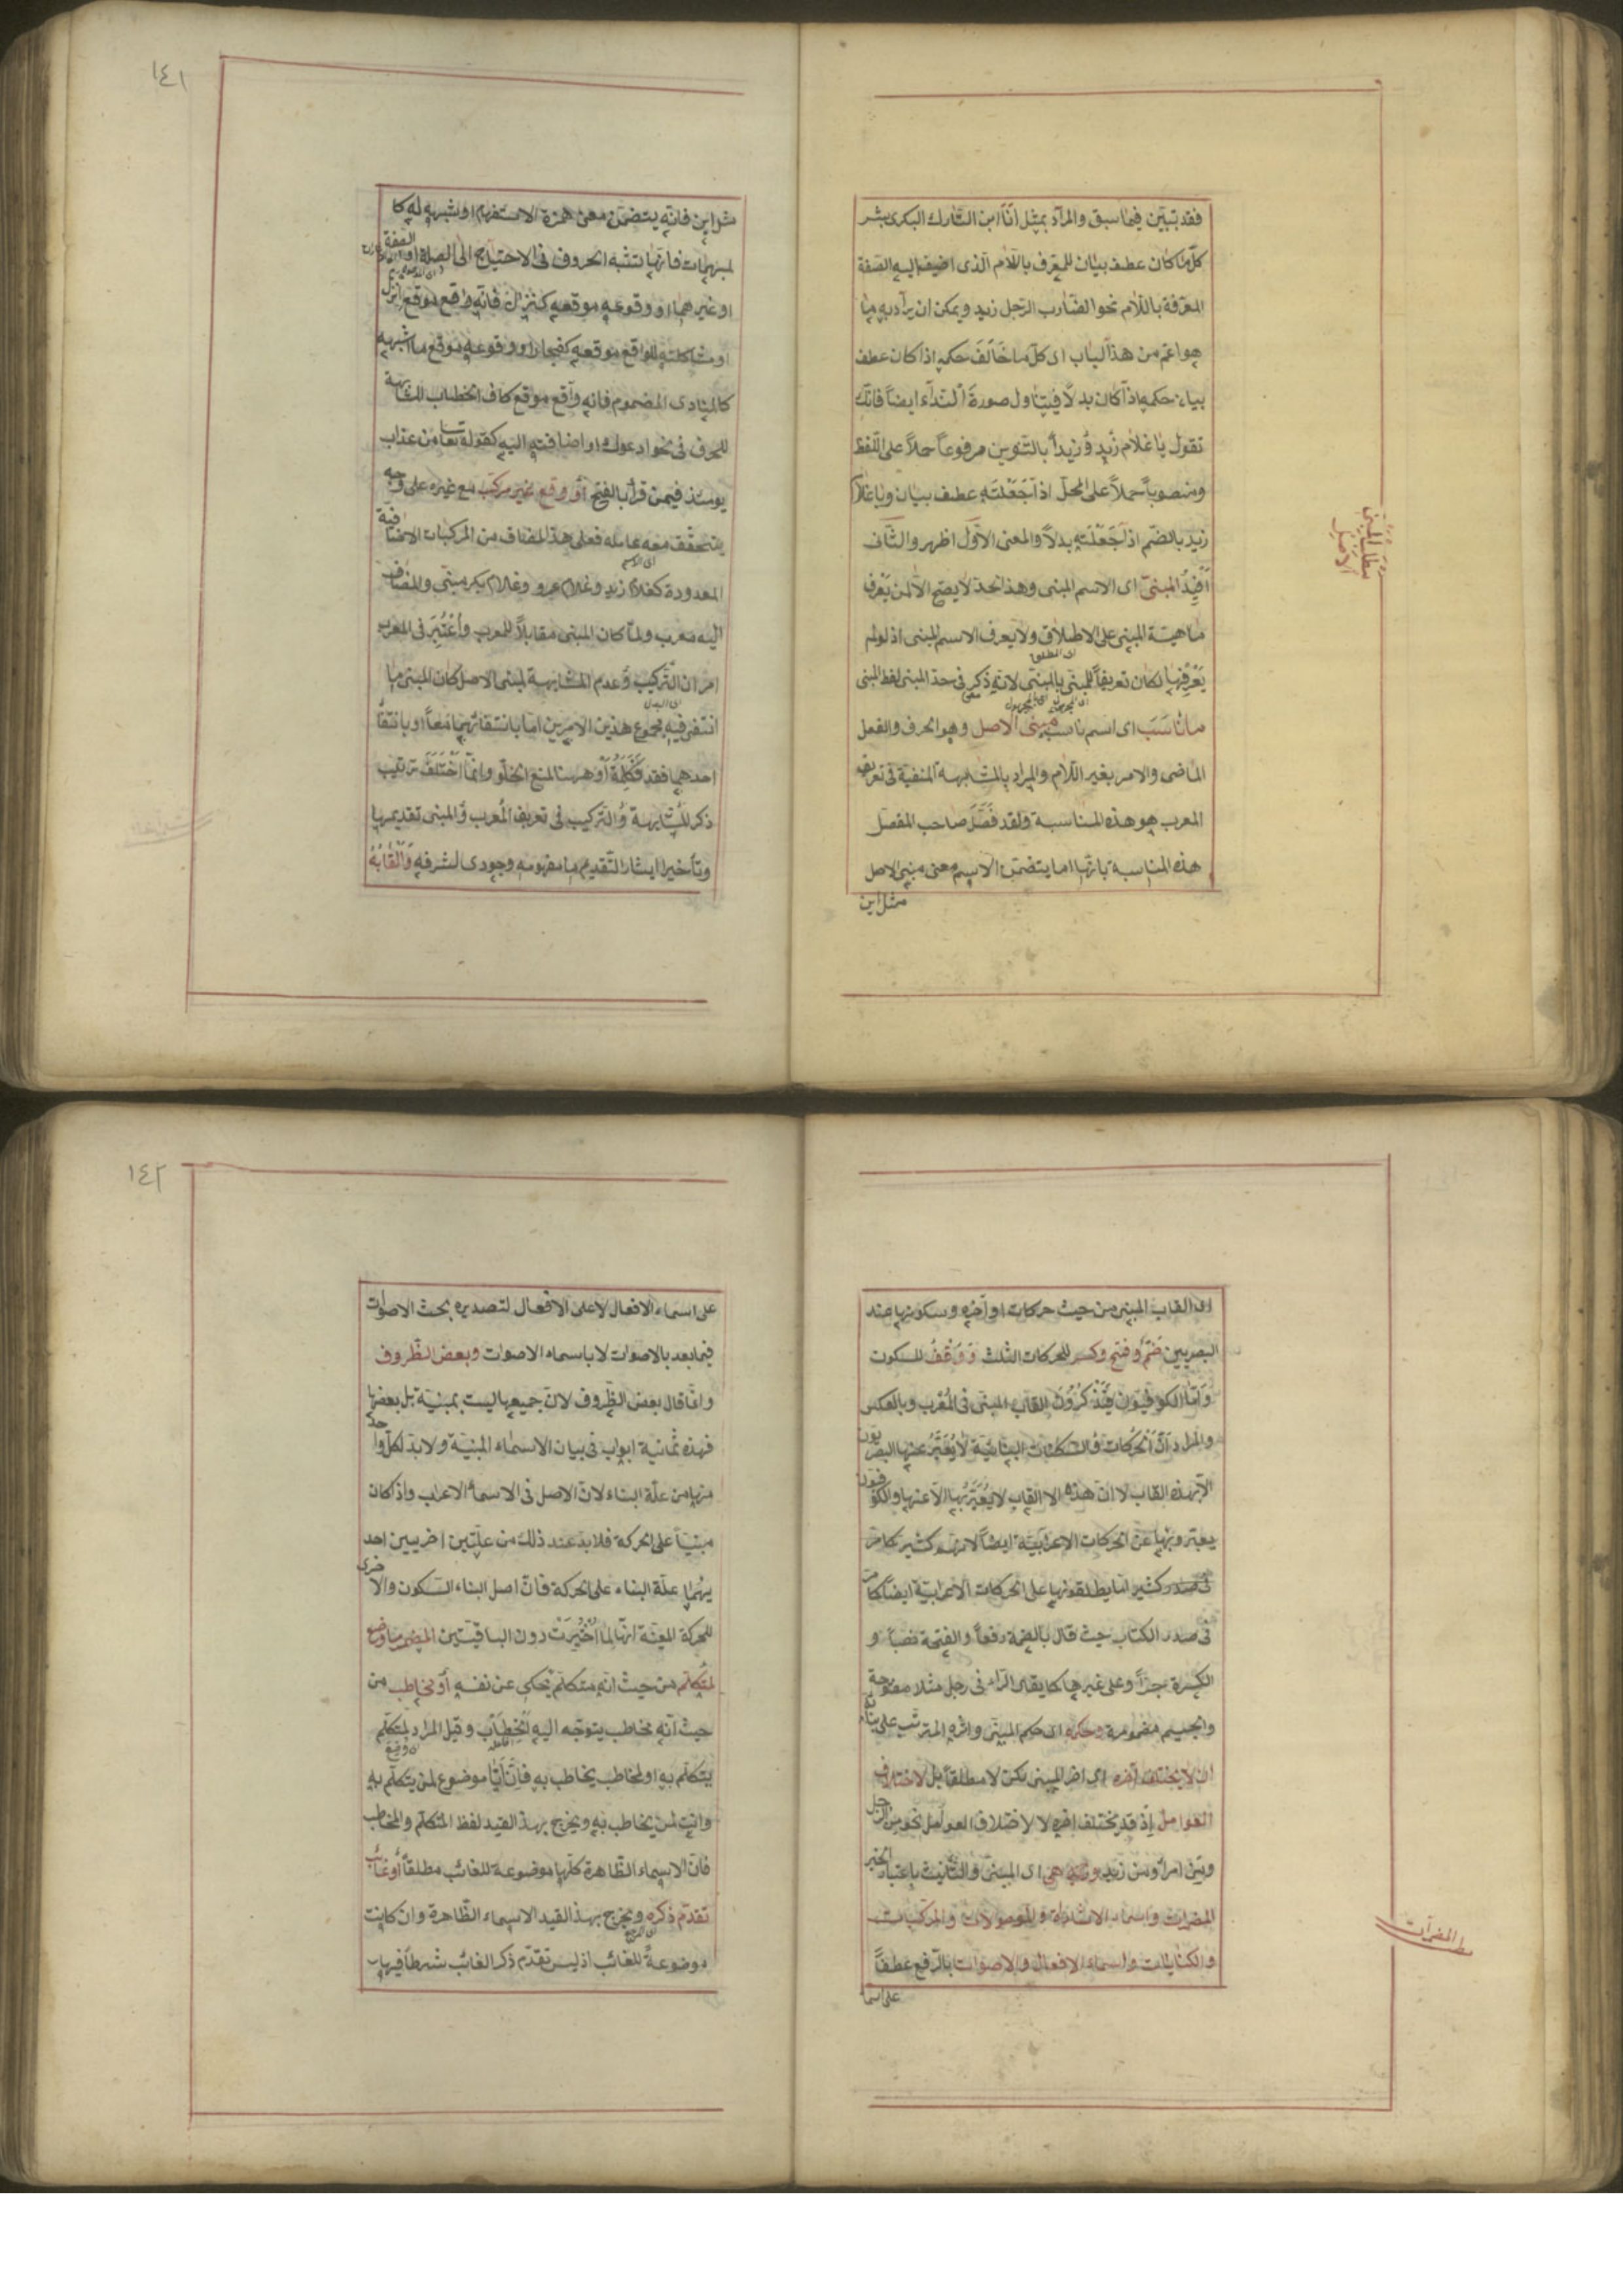 فقد تبيّن فيما سبق والمراد بمثل انا ابن التارك البكرى بشر
كل ما كان عطف بيان للمعرف باللام الذى اضيف اليه الصفة
المعرفة باللام نحو الضارب الرجل زيد ويمكن ان يراد به ما
هو اعم من هذا الباب اى كل ما خالف حكمه اذا كان عطف
بيان حكمه اذا كان بدلا فيتناول صورة النداء ايضا فانك
تقول يا غلام زيد وزيدا بالتنوين مرفوعا حملا على اللفظ
ومنصوبا حملا على المحل اذا جعلته عطف بيان ويا غلام
زيد بالضم اذا جعلته بدلا والمعنى الاول اظهر والثانى
افيد المبنى اى الاسم المبنى وهذا الحد لا يصح الا لمن يعرف
ماهية المبنى على الاطلاق ولا يعرف الاسم المبنى اذ لو لم
يعرفها لكان تعريفا للمبنى بالمبنى لانه ذكر فى حد المبنى لفظ المبنى
ما ناسب اى اسم ناسب مبنى الاصل وهو الحرف والفعل
الماضى والامر بغير اللام والمراد بالمشابهة المنفية فى تعريف
المعرب هو هذه المناسبة ولقد فصل صاحب المفصل
هذه المناسبة بانها اما بتضمن الاسم معنى مبنى الاصل
مثل اين
مطلب المبنى
الاصل
١٤١
مثل اين فانه يتضمن معنى همزة الاستفهام او شبهه له كا
لمبهمات فانها تشبه الحروف فى الاحتياج الى الصلة او الصفة
او غيرهما او وقوعه موقعه كنزال فانه وقع موقع انزل
او مشاكلته للواقع موقعه كفجار او وقوعه موقع ما اشبهه
كالمنادى المضموم فانه واقع موقع كاف الخطاب المشابهة
للحرف فى نحو ادعوك او اضافته اليه كقوله تعالى من عذاب
يومئذ فيمن قرأ بالفتح او وقع غير مركب مع غيره على وجه
يتحقق معه عامله فعلى هذا المضاف من المركبات الاضافية
المعدودة كغلام زيد وغلام عمرو وغلام بكر مبنى والمضاف
اليه معرب ولما كان المبنى مقابلا للمعرب واعتبر فى المعرب
امران التركيب وعدم المشابهة لمبنى الاصل كان المبنى ما
انتفى فيه مجموع هذين الامرين اما بانتفائهما معا او بانتفاء
احدهما فقط فكلمة او ههنا لمنع الخلو وانما اختلف ترتيب
ذكر المشابهة والتركيب فى تعريف المعرب والمبنى تقديما
وتأخيرا ايثارا لتقديم ما مفهومه وجودى لشرفه والقابه
اى القاب المبنى من حيث حركات اواخره وسكونها عند
البصريين ضم وفتح وكسر للحركات الثلث ووقف للسكون
واما الكوفيون فيذكرون القاب المبنى فى المعرب وبالعكس
والمراد ان الحركات والسكنات البنائية لا يعبر عنها البصريون
الا بهذه القاب لا ان هذه الالقاب لا يعبر بها الا عنها والكوفيون
فى صدر الكتاب حيث قال بالضمة رفعا والفتحة نصبا و
الكسرة جرا وعلى غيرها كما يقال الراء فى رجل مثلا مفتوحة
والجيم مضمومة وحكمه اى حكم المبنى واثره المترتب على بنائه
ان لا يختلف آخره اى اخر المبنى لكن لا مطلقا بل لاختلاف
العوامل اذ قد يختلف اخره لا لاختلاف العوامل نحو من الرجل
ومن امرأ ومن زيد وهى اى المبنى والتأنيث باعتبار الخبر
المضمرات واسماء الاشارة والموصولات والمركبات
والكنايات واسماء الافعال والاصوات بالرفع عطفا
على اسما
مط المضمرات
١٤٢
على اسماء الافعال لا على الافعال لتصديره بحث الاصوات
فيما بعد بالاصوات لا باسماء الاصوات وبعض الظروف
وانما قال بعض الظروف لان جميعها ليست بمبنية بل بعضها
فهذه ثمانية ابواب فى بيان الاسماء المبنية ولا بد لكل واحد
منها من علة البناء لان الاصل فى الاسماء الاعراب واذا كان
مبنيا على الحركة فلا بد عند ذلك من علتين اخريين احد
يهما علة البناء على الحركة فان اصل البناء السكون والاخرى
للحركة المعينة انها لما اختيرت دون الباقيتين المضمر ما وضع
لمتكلم من حيث انه متكلم يحكى عن نفسه او مخاطب من
حيث انه مخاطب يتوجه اليه الخطاب وقيل المراد بالمتكلم
يتكلم به او لمخاطب يخاطب به فان انا موضوع لمن يتكلم به
وانت لمن يخاطب به ويخرج بهذا القيد لفظ المتكلم والمخاطب
فان الاسماء الظاهرة كلها موضوعة للغائب مطلقا او غائب
تقدم ذكره ويخرج بهذا القيد الاسماء الظاهرة وان كانت
موضوعة للغائب اذ ليس تقدم ذكر الغائب شرطا فيها